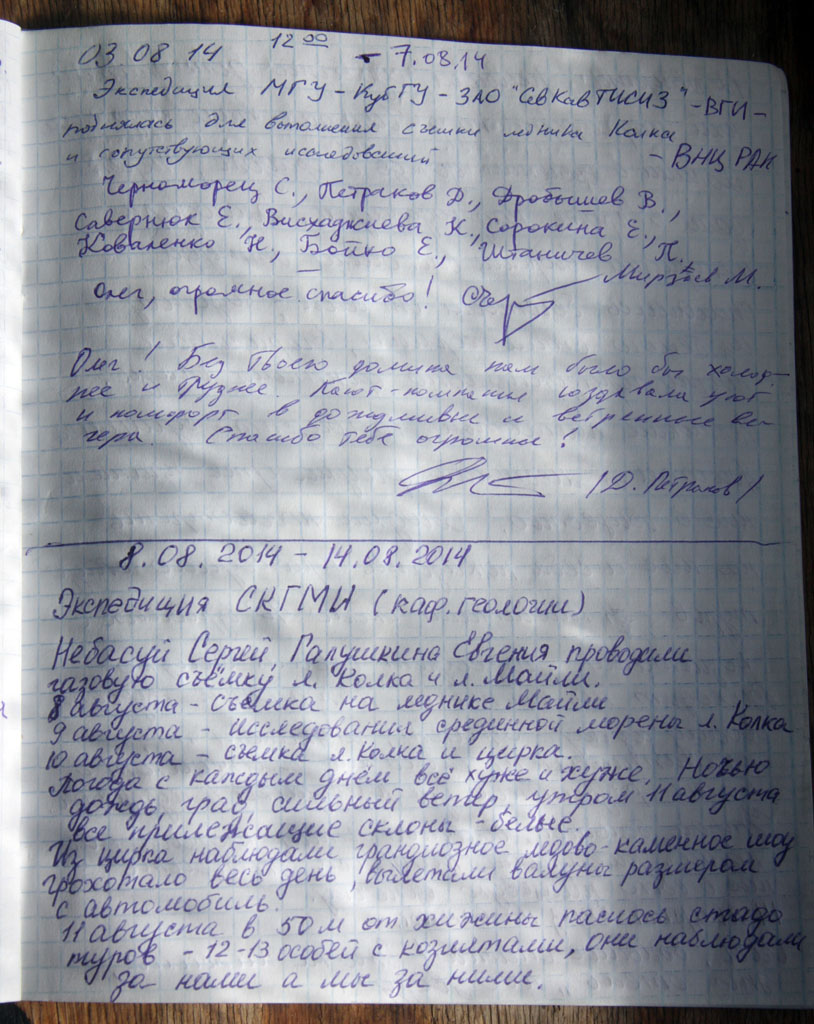 03 08 14 12 00 - 7.08.14
Экспедиция МГУ - КубГУ - ЗАО "СевКавТИСИЗ" - ВГИ -
поднялась для выполнения съемки ледника Колка
и сопутствующих исследований. - ВНЦ РАН
Черноморец С., Петраков Д., Дробышев В.,
Савернюк Е., Висхаджиева К., Сорокина Е.,
Коваленко Н., Бойко Е., Штаничев П.,
Мирзоев М.
Олег, огромное спасибо!
Олег! Без твоего домика нам было бы холод-
нее и грузнее. Кают-компания создавала уют
и комфорт в дождливые и ветренные ве-
чера. Спасибо тебе огромное!
/Д. Петраков/
8.08.2014 - 14.08.2014
Экспедиция СКГМИ (каф. геологии)
Небасуй Сергей, Галушкина Евгения проводили
газовую съёмку л. Колка и л. Майли.
8 августа - съёмка на леднике Майли
9 августа - исследования срединной морены л. Колка
10 августа - съемка л. Колка и цирка.
Погода с каждым днем всё хуже и хуже. Ночью
дождь, град, сильный ветер, утром 11 августа
все прилежащие склоны - белые.
Из цирка наблюдали грандиозное ледово-каменное шоу
грохотало весь день, вылетали валуны размером
с автомобиль.
11 августа в 50 м от хижины паслось стадо
туров - 12-13 особей с козлятами, они наблюдали
за нами а мы за ними.